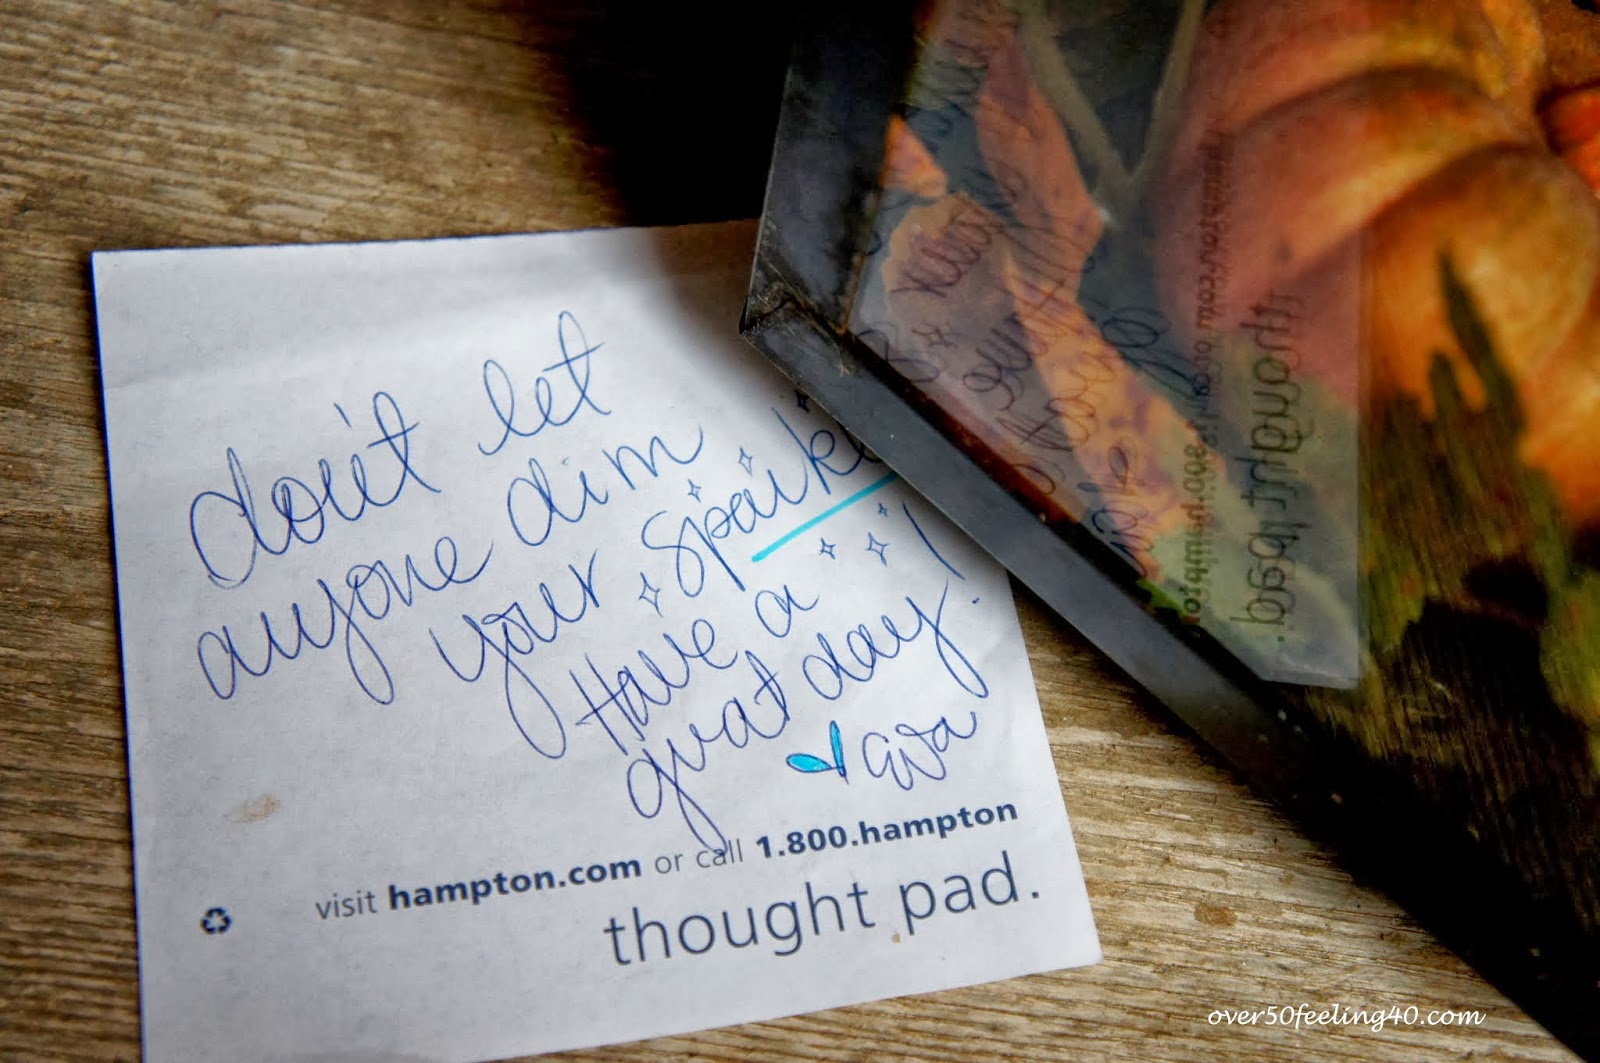 don't let
anyone dim
your spark
Have a
great day!
Ava
visit hampton.com or call 1.800.hampton
thought pad.
over50feeling40.com